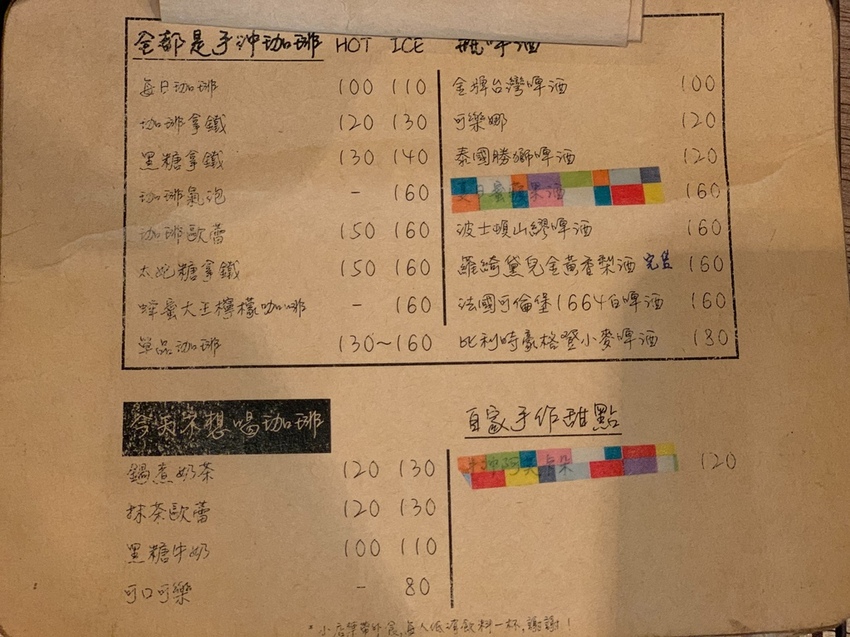 全都是手沖咖啡 HOT ICE
每日咖啡 100 110
咖啡拿鐵 120 130
黑糖拿鐵 130 140
咖啡氣泡 - 160
咖啡歐蕾 150 160
太妃糖拿鐵 150 160
蜂蜜大正檸檬咖啡 - 160
單品咖啡 130~160
瓶啤酒
金牌台灣啤酒 100
可樂娜 120
泰國勝獅啤酒 120
夏日蜜蘋果酒 160
波士頓山繆啤酒 160
羅綺黛兒金黃香梨酒 完售 160
法國可倫堡1664白啤酒 160
比利時豪格登小麥啤酒 180
今天不想喝咖啡
鍋煮奶茶 120 130
抹茶歐蕾 120 130
黑糖牛奶 100 110
可口可樂 - 80
自家手作甜點
手沖阿芙卡朵 120
*小店無帶外食,每人低消飲料一杯,謝謝!